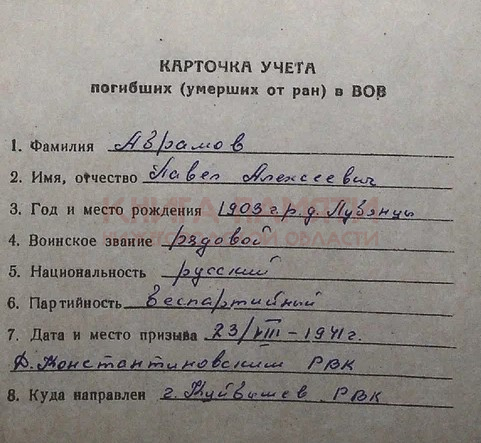 КАРТОЧКА УЧЕТА
погибших (умерших от ран) в ВОВ
1. Фамилия Абрамов
2. Имя, отчество Павел Алексеевич
3. Год и место рождения 1903 г.р. д. Лубянцы
4. Воинское звание рядовой
5. Национальность русский
6. Партийность беспартийный
7. Дата и место призыва 23/VIII-1941г.
Д. Константиновским РВК
8. Куда направлен г. Куйбышев РВК
КНИГА ПАМЯТИ
ОБЛАСТИ